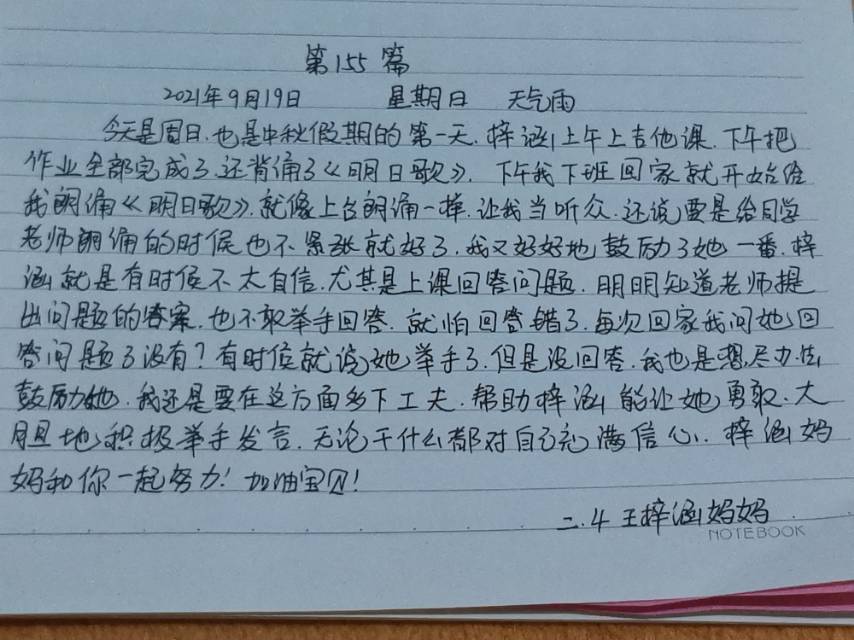 第155篇
2021年9月19日 星期日 天气雨
今天是周日,也是中秋假期的第一天,梓涵上午上吉他课,下午把
作业全部完成了,还背诵了《明日歌》,下午我下班回家就开始给
我朗诵《明日歌》,就像上台朗诵一样,让我当听众,还说要是给同学
老师朗诵的时候也不紧张就好了,我又好好地鼓励了她一番,梓
涵就是有时候不太自信,尤其是上课回答问题,明明知道老师提
出问题的答案,也不敢举手回答,就怕回答错了,每次回家我问她回
答问题了没有?有时候就说她举手了,但是没回答,我也是想尽办法
鼓励她,我还是要在这方面多下工夫,帮助梓涵能让她勇敢、大
胆地积极举手发言,无论干什么都对自己充满信心,梓涵妈
妈和你一起努力!加油宝贝!
二.4 王梓涵妈妈
NOTEBOOK